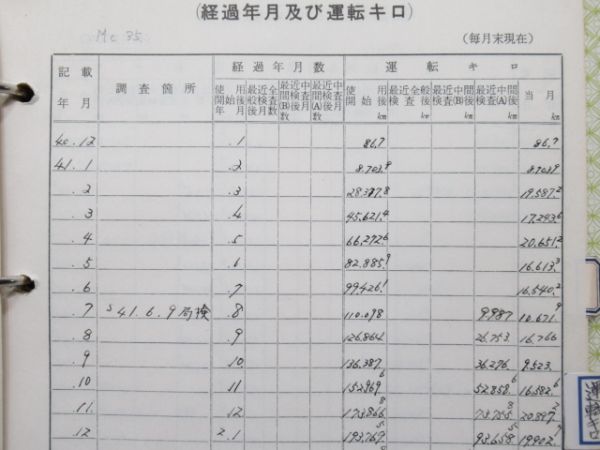 (経過年月及び運転キロ)
Mc 35
(毎月末現在)
記載年月 調査箇所 経過年月数 運転キロ
使用開始後年月 最近全般検査後月数 最近中間(B)検査後月数 最近中間(A)検査後月数 使用開始後km 最近全般検査後km 最近中間検査(B)後km 最近中間検査(A)後km 当月km
40.12 .1 86.7 86.7
41.1 .2 8.703.9 8.703.9
.2 .3 19.587.2
.3 .4 45.621.4 17.293.6
.4 .5 66.272.6 20.651.2
.5 .6 82.885.9 16.613.3
.6 .7 99.426.1 16.540.2
.7 S41.6.9局検 .8 110.098 9987 10.671.9
.8 .9 126.864 26.753 16.766
.9 10 136.387 36.276 9.523
.10 11 152.969.6 52.858.6 16.582.6
11 12 173.866.8 73.755.8 20.897.2
.12 2.1 193.769.5 93.658.5 19.902.7
運転キロ